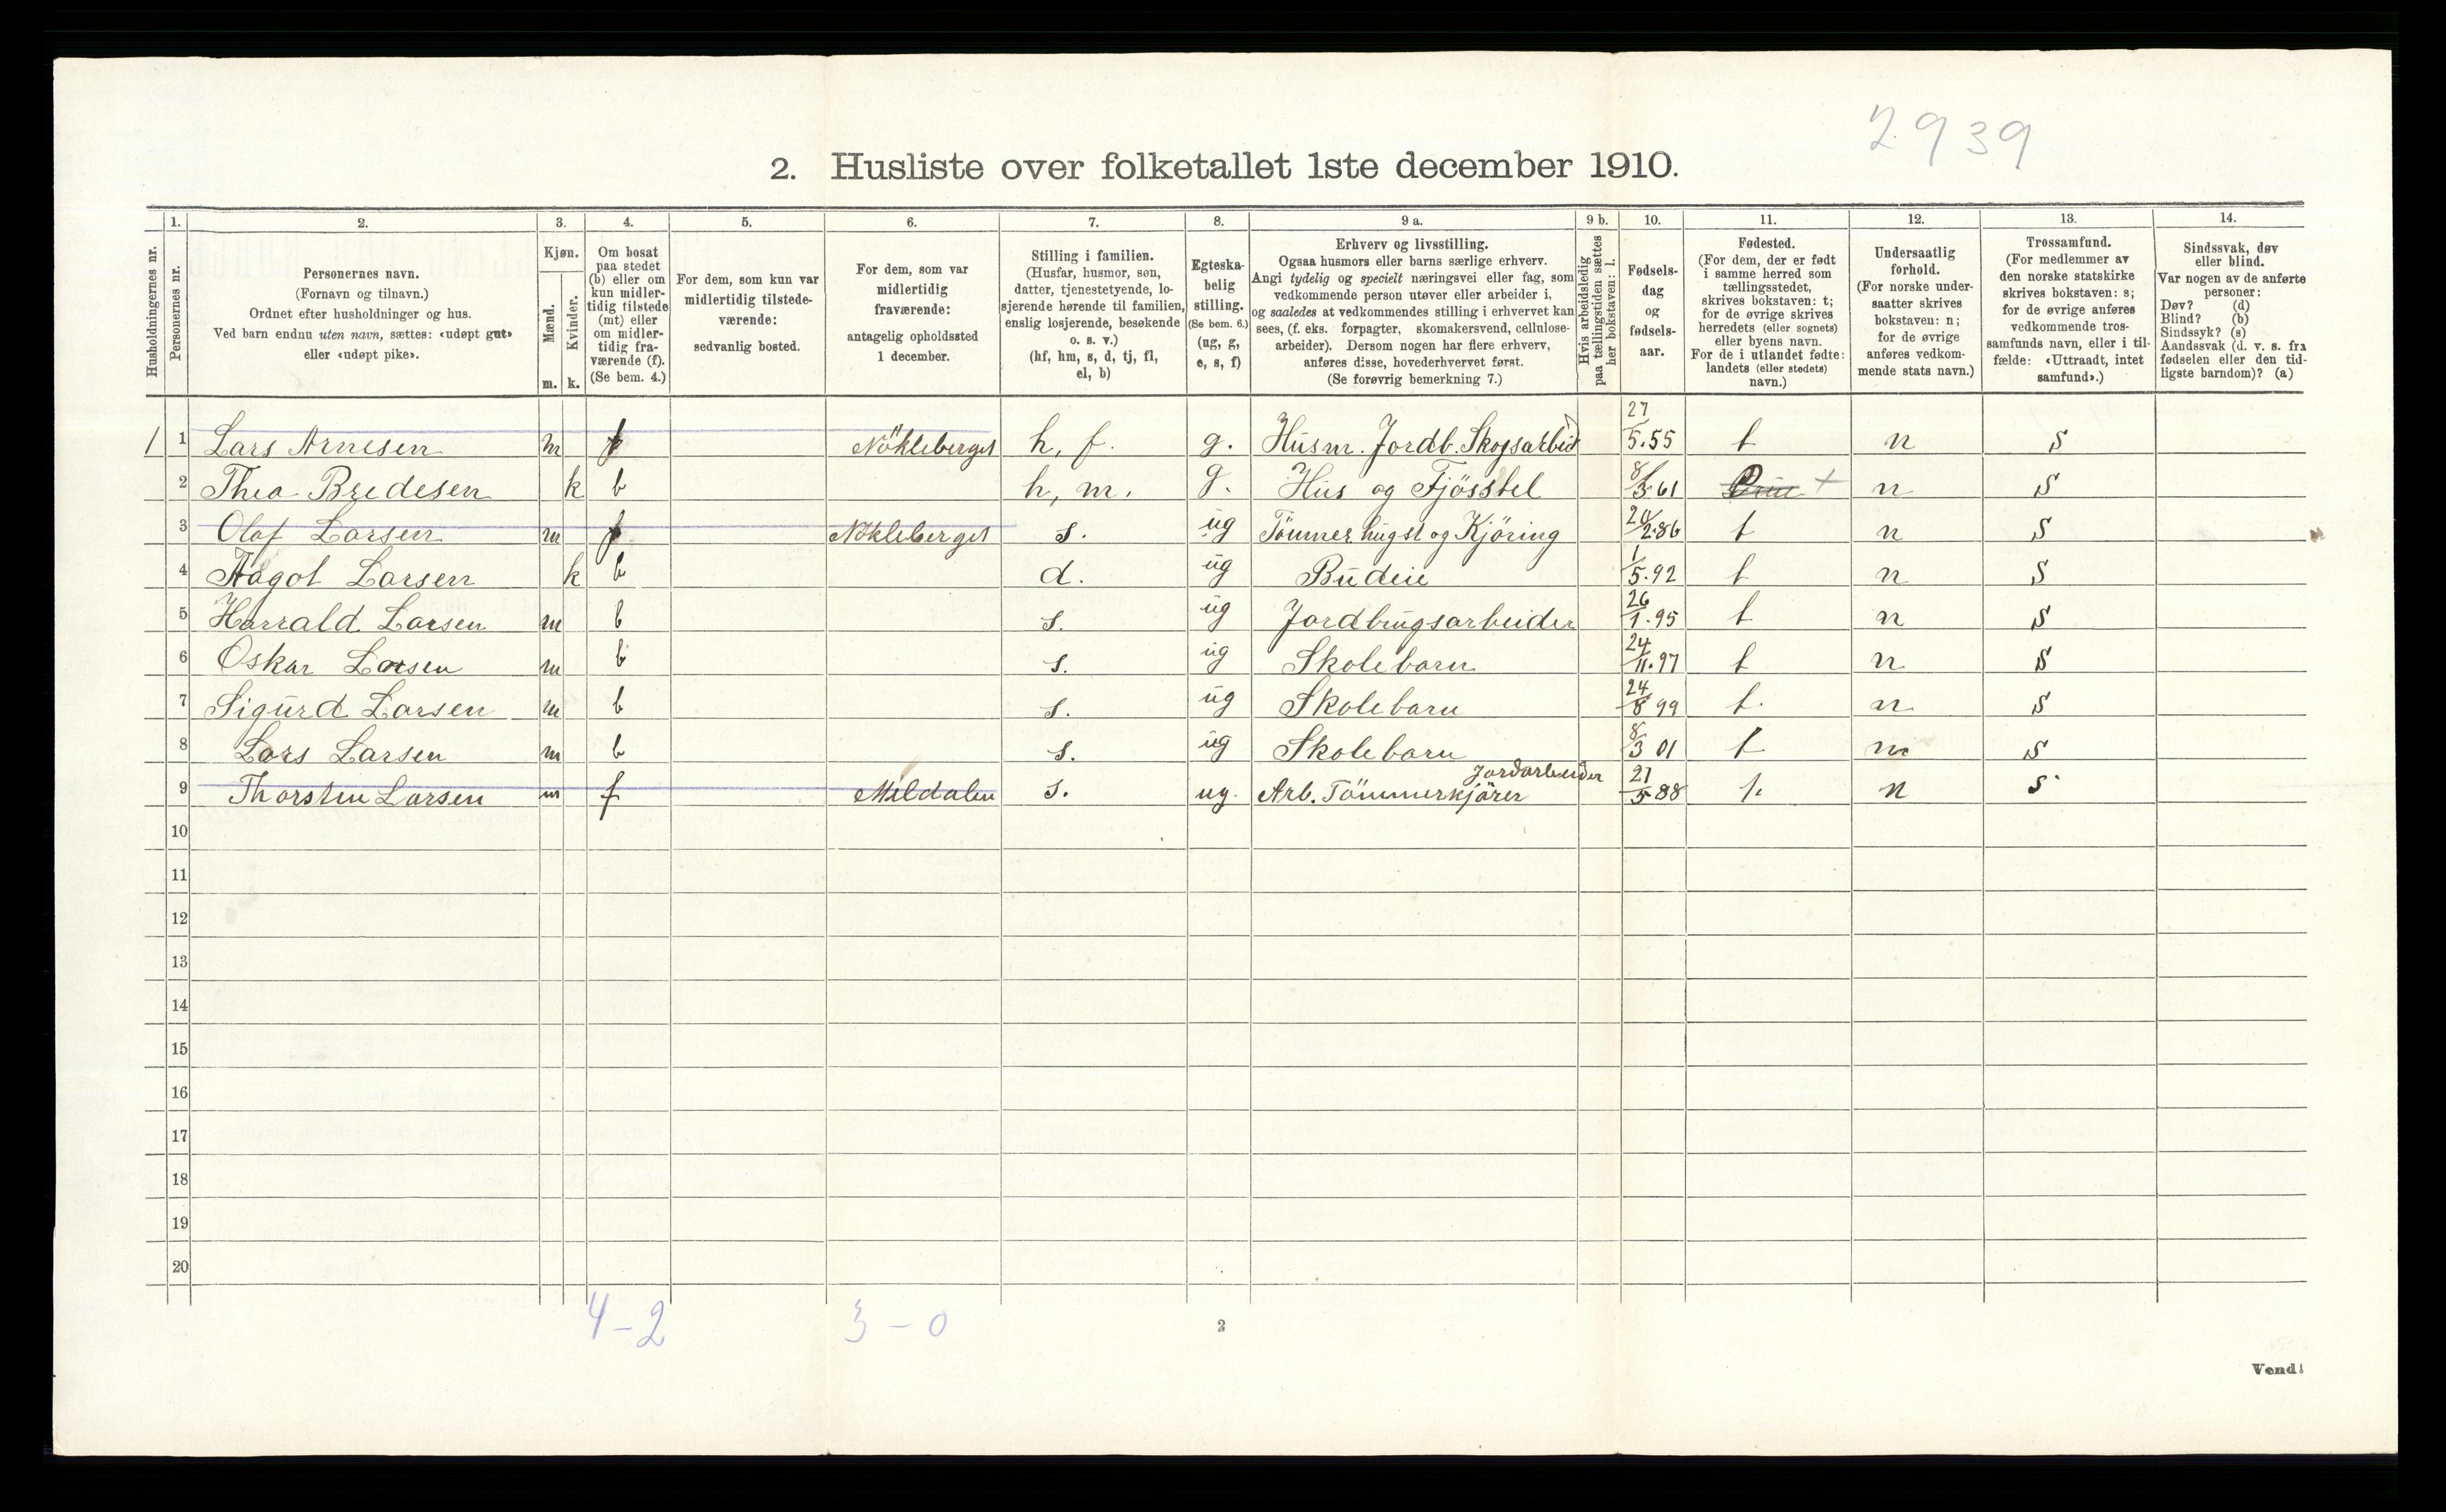 2939
2. Husliste over folketallet 1ste december 1910.
Husholdningernes nr.
1.
Personernes nr.
2.
Personernes navn.
(Fornavn og tilnavn.)
Ordnet efter husholdninger og hus.
Ved barn endnu uten navn, sættes: «udøpt gut»
eller «udøpt pike».
3.
Kjøn.
Mænd.
Kvinder.
m. k.
4.
Om bosat
paa stedet
(b) eller om
kun midler-
tidig tilstede
(mt) eller
om midler-
tidig fra-
værende (f).
(Se bem. 4.)
5.
For dem, som kun var
midlertidig tilstede-
værende:
sedvanlig bosted.
6.
For dem, som var
midlertidig
fraværende:
antagelig opholdssted
1 december.
7.
Stilling i familien.
(Husfar, husmor, søn,
datter, tjenestetyende, lo-
sjerende hørende til familien,
enslig losjerende, besøkende
o. s. v.)
(hf, hm, s, d, tj, fl,
el, b)
8.
Egteska-
belig
stilling.
(Se bem. 6.)
(ug, g,
e, s, f)
9 a.
Erhverv og livsstilling.
Ogsaa husmors eller barns særlige erhverv.
Angi tydelig og specielt næringsvei eller fag, som
vedkommende person utøver eller arbeider i,
og saaledes at vedkommendes stilling i erhvervet kan
sees, (f. eks. forpagter, skomakersvend, cellulose-
arbeider). Dersom nogen har flere erhverv,
anføres disse, hovederhvervet først.
(Se forøvrig bemerkning 7.)
9 b.
Hvis arbeidsledig
paa tællingstiden sættes
her bokstaven: l.
10.
Fødsels-
dag
og
fødsels-
aar.
11.
Fødested.
(For dem, der er født
i samme herred som
tællingsstedet,
skrives bokstaven: t;
for de øvrige skrives
herredets (eller sognets)
eller byens navn.
For de i utlandet fødte:
landets (eller stedets)
navn.)
12.
Undersaatlig
forhold.
(For norske under-
saatter skrives
bokstaven: n;
for de øvrige
anføres vedkom-
mende stats navn.)
13.
Trossamfund.
(For medlemmer av
den norske statskirke
skrives bokstaven: s;
for de øvrige anføres
vedkommende tros-
samfunds navn, eller i til-
fælde: «Uttraadt, intet
samfund».)
14.
Sindssvak, døv
eller blind.
Var nogen av de anførte
personer:
Døv? (d)
Blind? (b)
Sindssyk? (s)
Aandssvak (d. v. s. fra
fødselen eller den tid-
ligste barndom)? (a)
1 1 Lars Arnesen m f Nökleberget h, f. g. Husm. Jordb. Skogsarbeid 27/5.55 t n S
2 Thea Bredesen k b h, m. g. Hus og Fjösstel 8/3 61 + n S
3 Olaf Larsen m f Nökleberget s. ug Tömmerhugst og Kjöring 20/2.86 t n S
4 Aagot Larsen k b d. ug Budeie 1/5.92 t n S
5 Harrald Larsen m b s. ug Jordbrugsarbeider 26/1.95 t n S
6 Oskar Larsen m b s. ug Skolebarn 24/11.97 t n S
7 Sigurd Larsen m b s. ug Skolebarn 24/8 99 t. n S
8 Lars Larsen m b s. ug Skolebarn 8/3 01 t n S
9 Thorsten Larsen m f Meldalen s. ug. Arb. Tömmerkjörer Jordarbeider 21/5 88 t. n S
10
11
12
13
14
15
16
17
18
19
20
4-2 3-0
2
Vend!